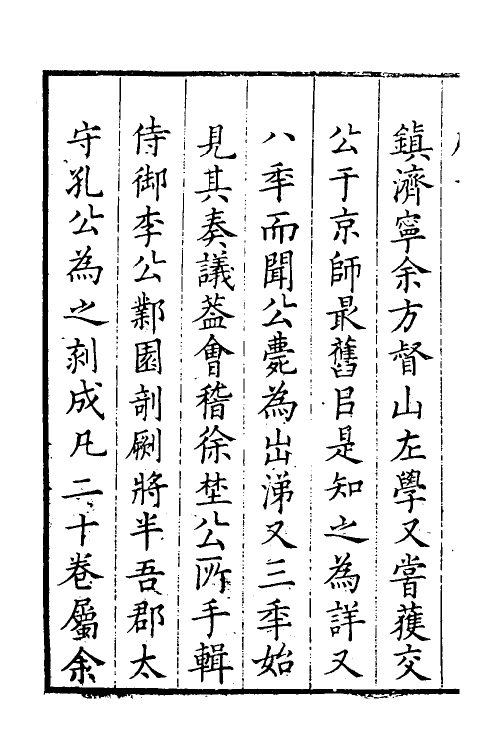 鎮濟寧余方督山左學又嘗獲交
公于京師最舊㠯是知之為詳又
八秊而聞公薨為出涕又三秊始
見其奏議葢會稽徐埜公所手輯
侍御李公鄴園剞劂將半吾郡太
守孔公為之刻成凡二十卷屬余